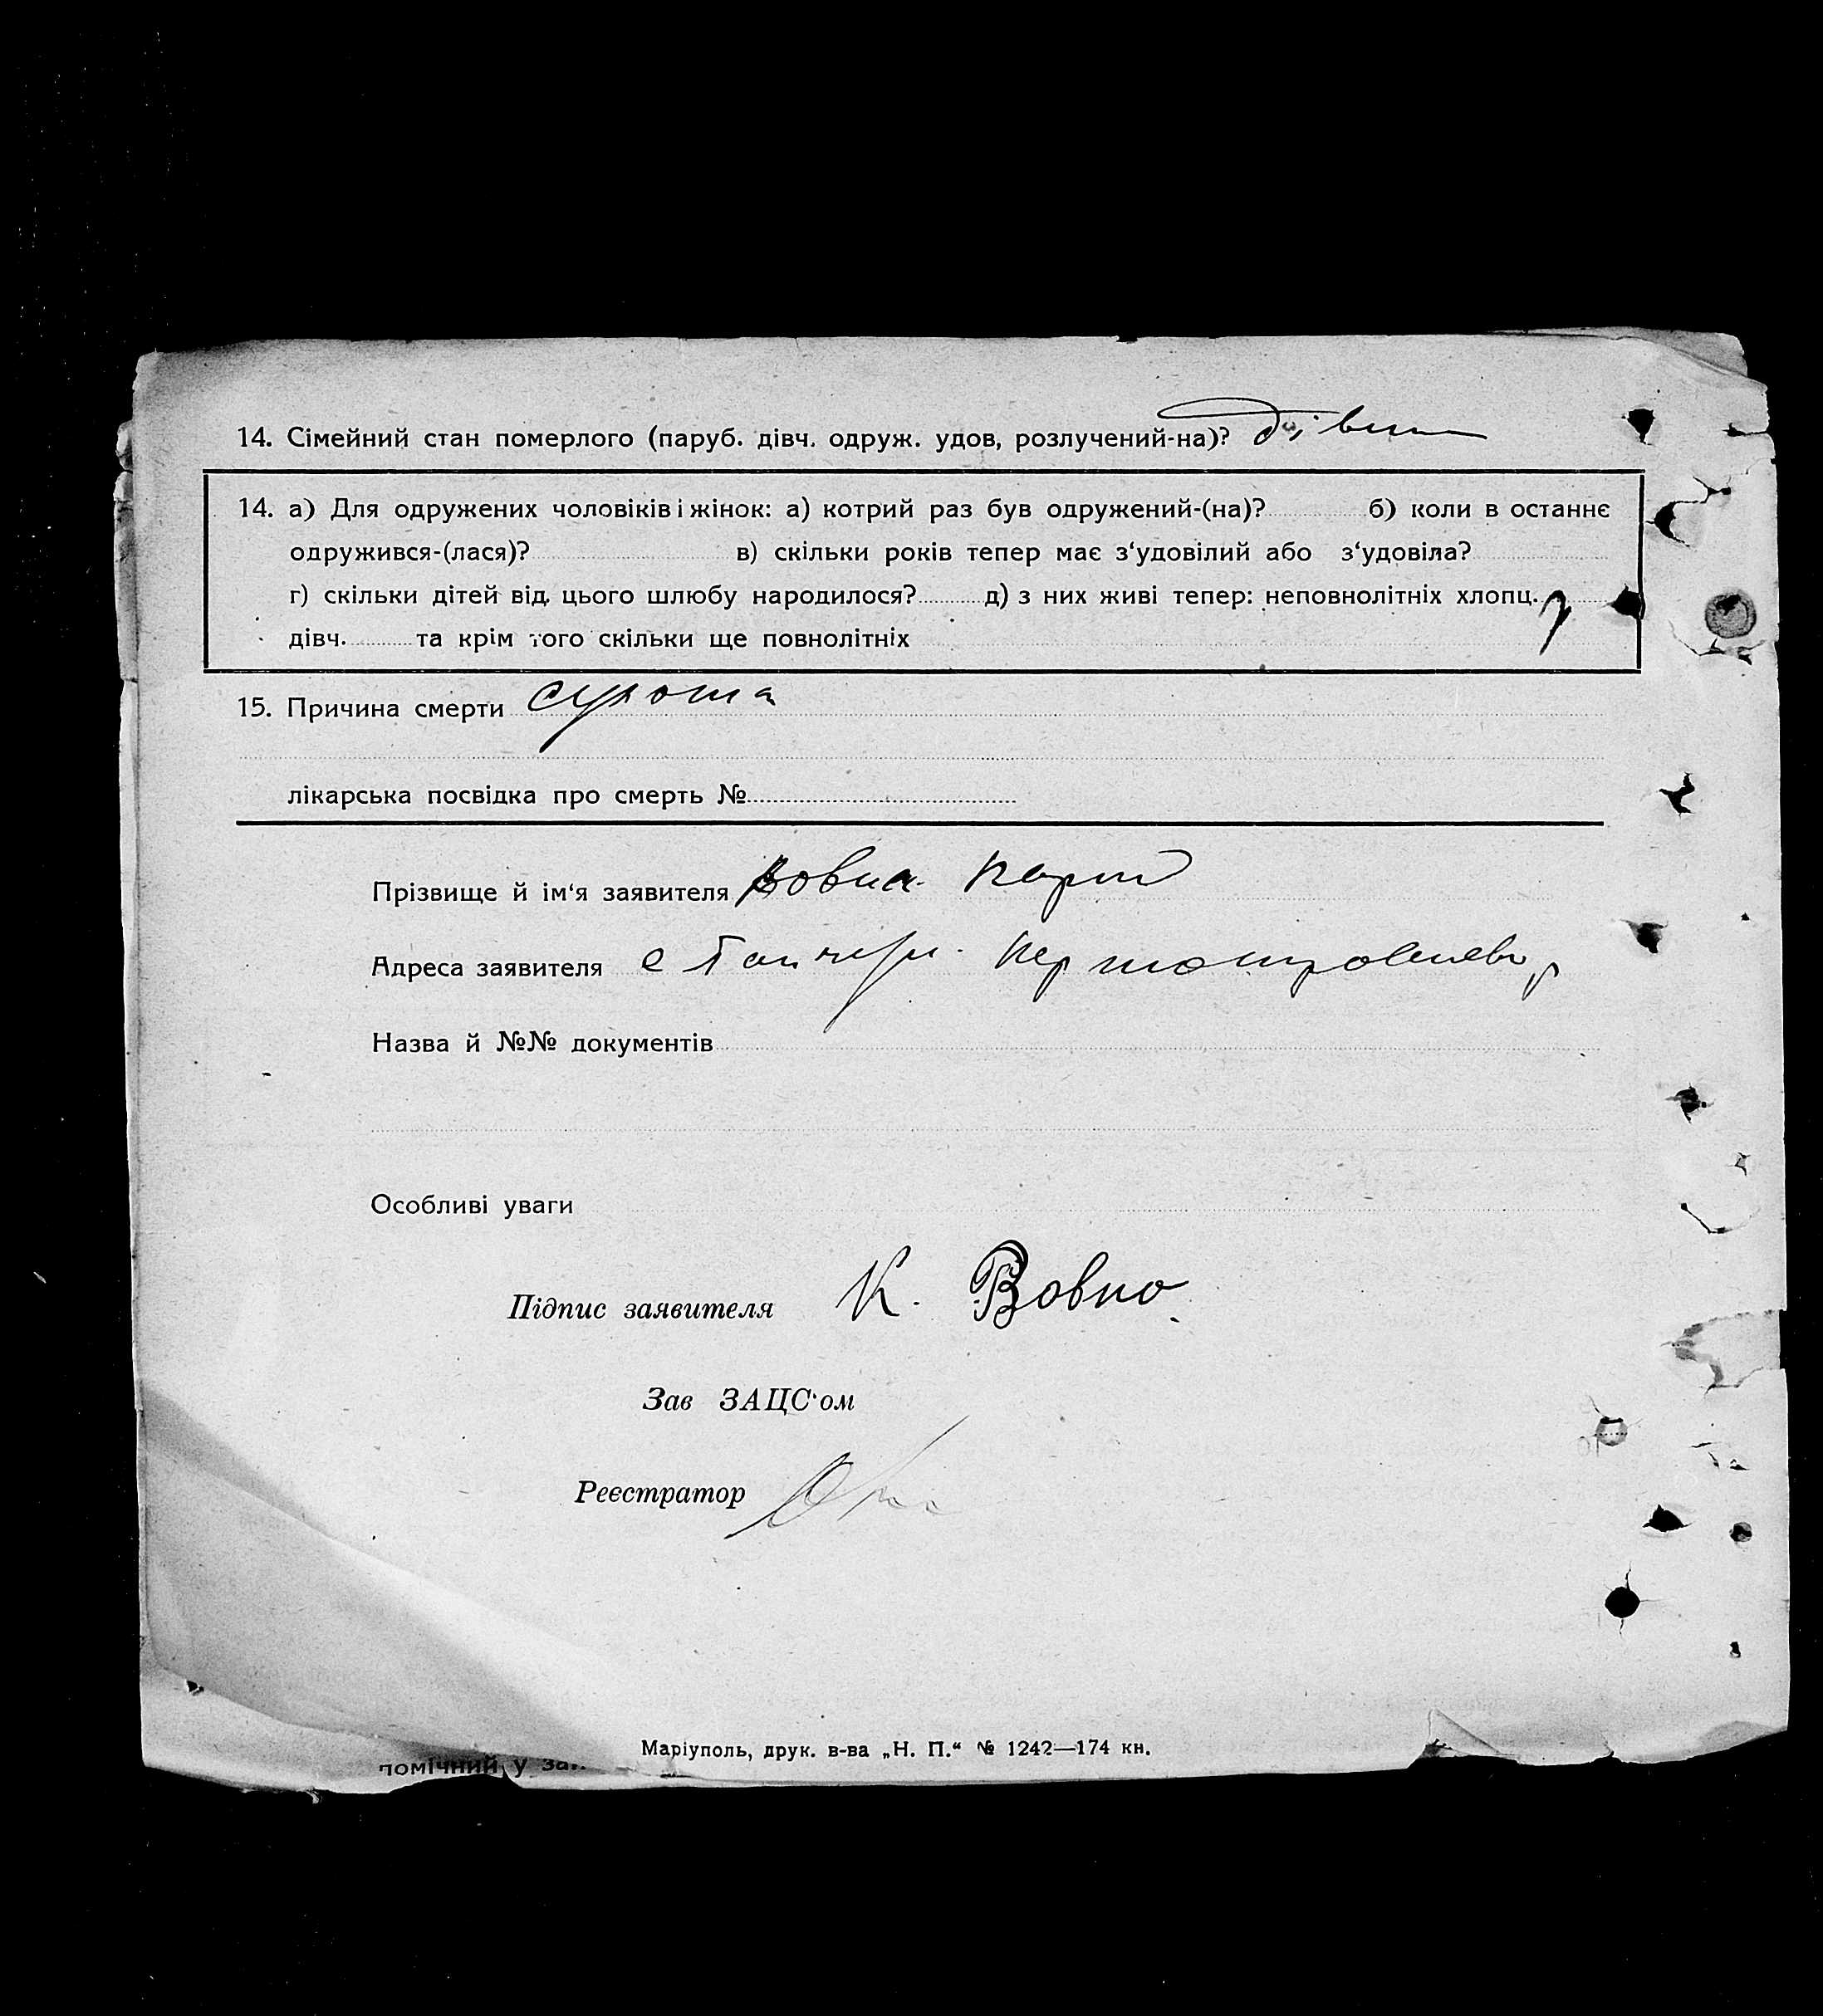 14. Сімейний стан померлого (паруб. дівч. одруж. удов, розлучений-на)? дівч
14. а) Для одружених чоловіків і жінок: а) котрий раз був одружений-(на)? б) коли в останнє
одружився-(лася)? в) скільки років тепер має з‘удовілий або з‘удовіла?
г) скільки дітей від цього шлюбу народилося? д) з них живі тепер: неповнолітніх хлопц.
дівч. та крім того скільки ще повнолітніх
15. Причина смерти
лікарська посвідка про смерть №
Прізвище й ім‘я заявителя Вовна Карпо
Адреса заявителя с
Назва й №№ документів
Особливі уваги
Підпис заявителя К. Вовно.
Зав ЗАЦС‘ом
Реєстратор
Маріуполь, друк. в-ва „Н. П.“ № 1242—174 кн.
помічний у за